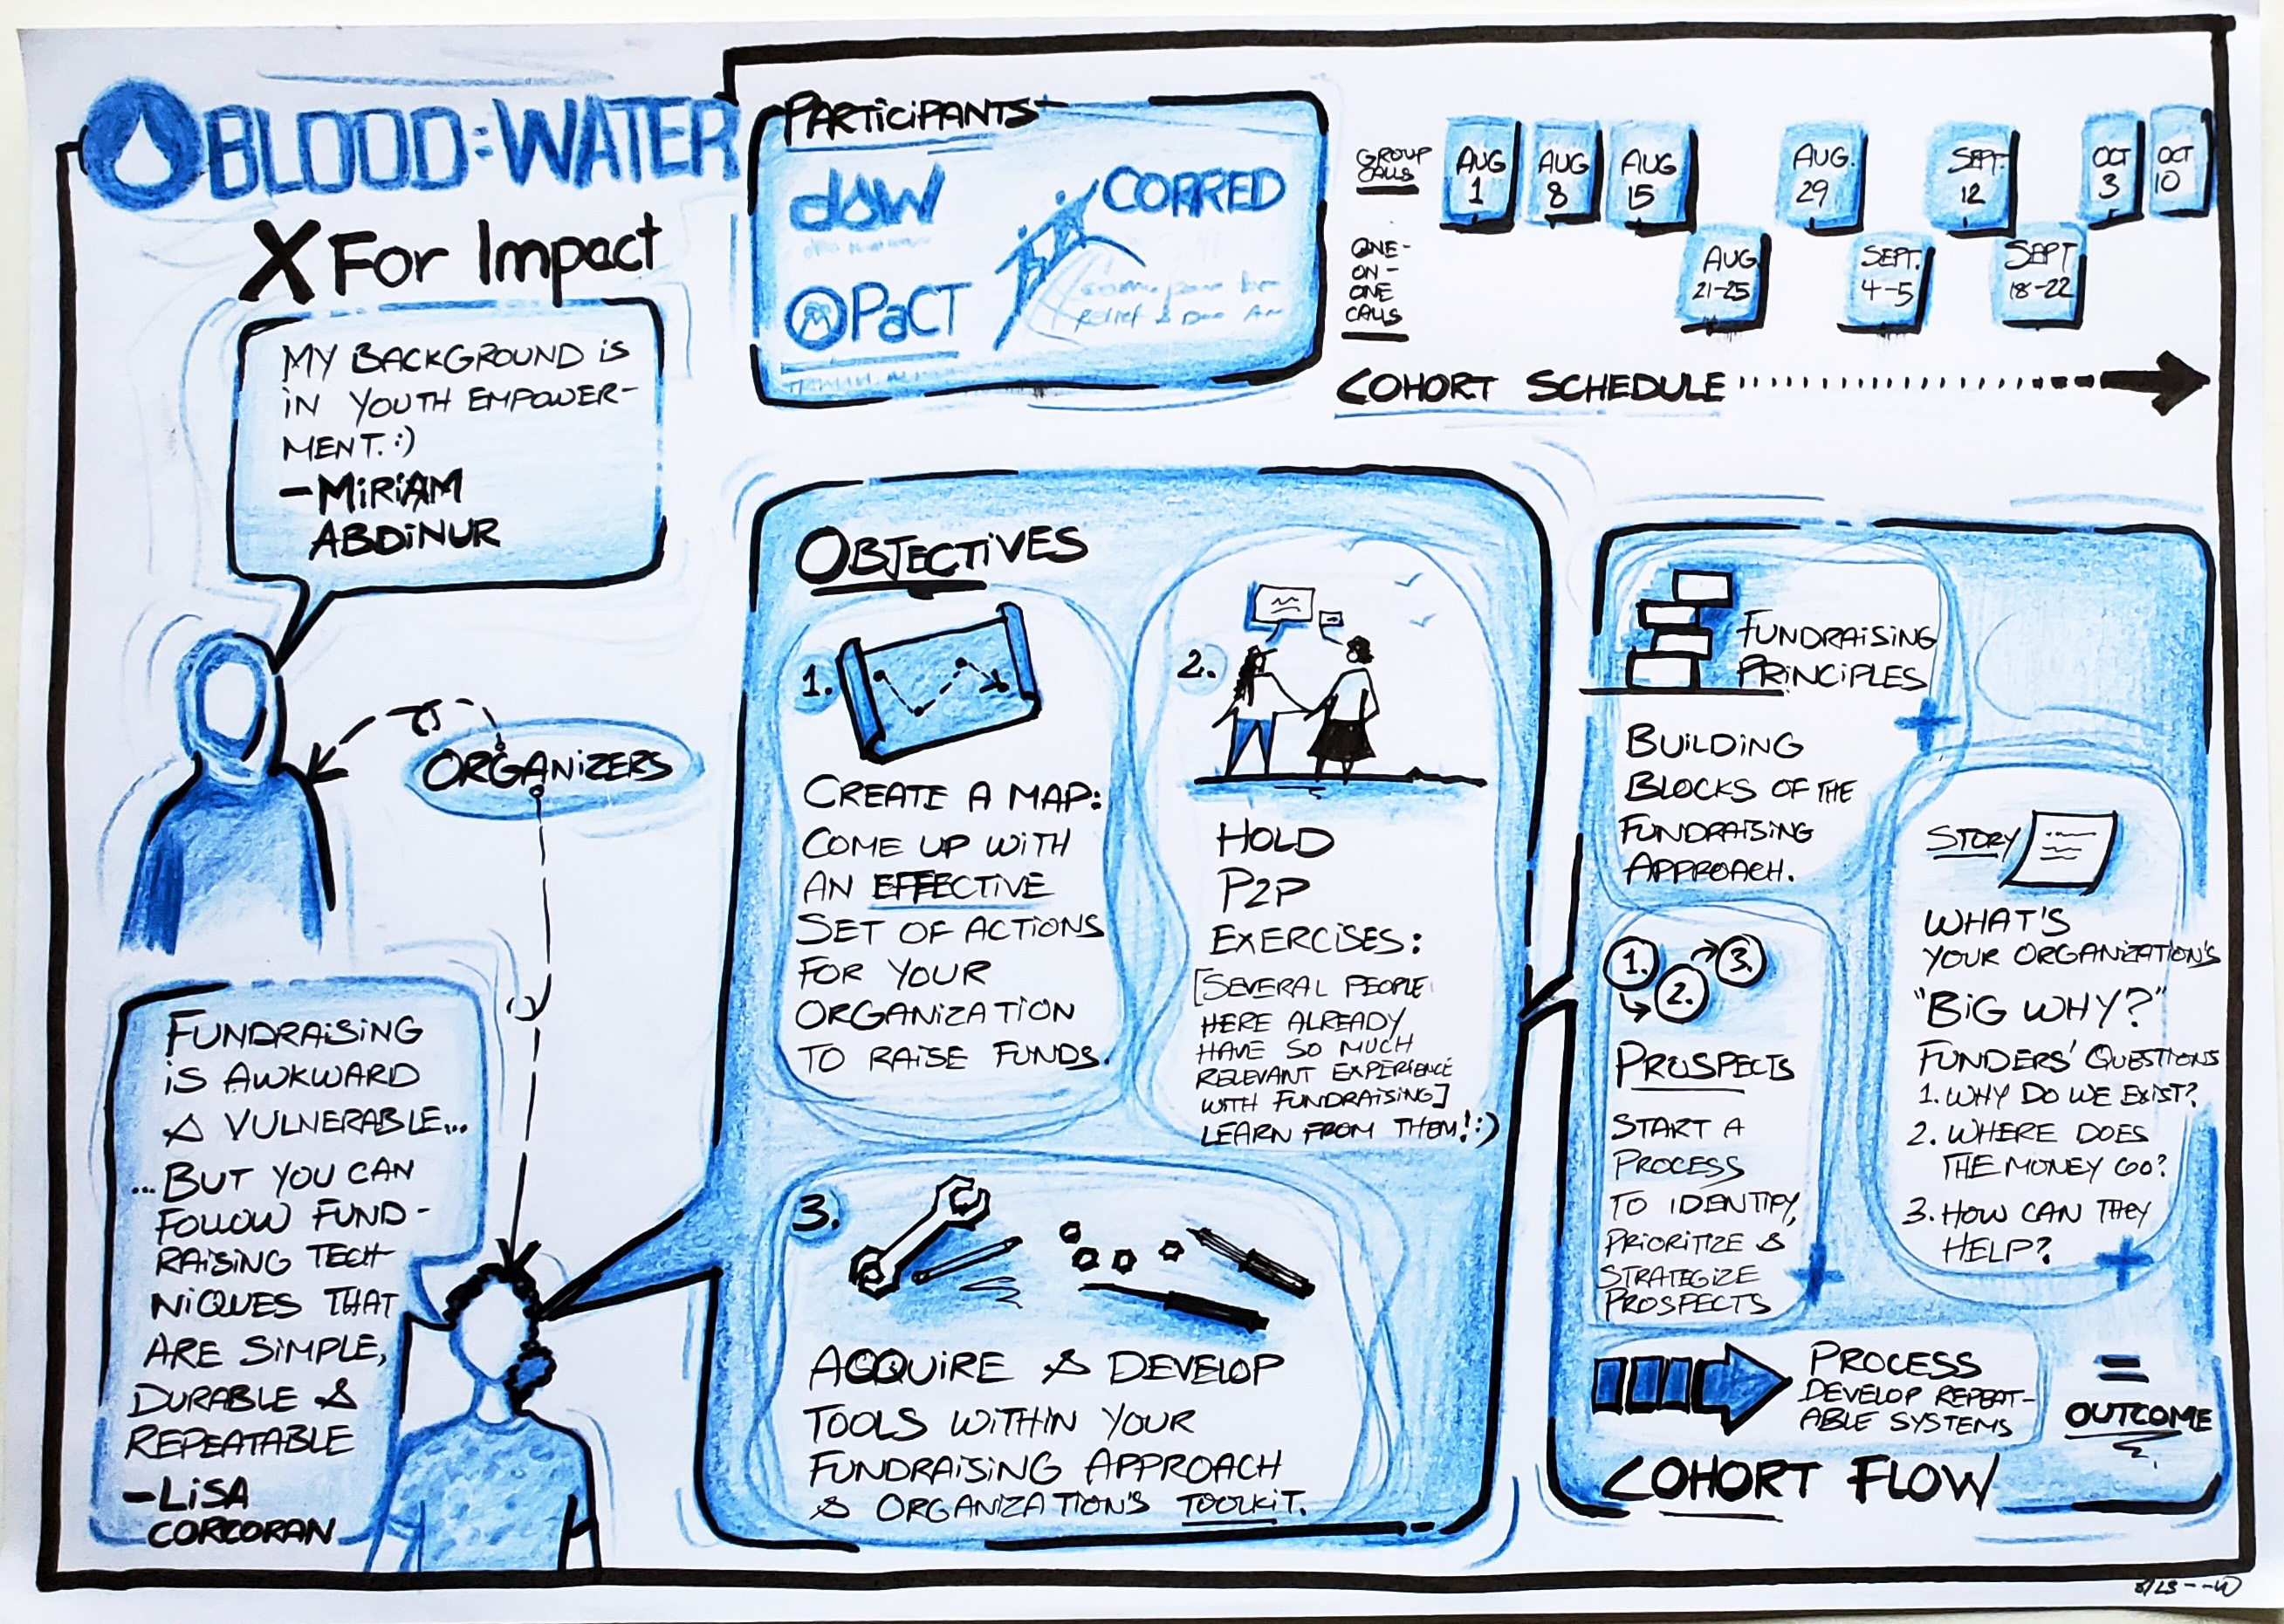 BLOOD:WATER
X For Impact
MY BACKGROUND IS
IN YOUTH EMPOWER-
MENT. :)
-MIRIAM
ABDINUR
ORGANIZERS
FUNDRAISING
IS AWKWARD
& VULNERABLE...
...BUT YOU CAN
FOLLOW FUND-
RAISING TECH-
NIQUES THAT
ARE SIMPLE,
DURABLE &
REPEATABLE
-LISA
CORCORAN
PARTICIPANTS
dsw
CORRED
PaCT
RELIEF &
GROUP
CALLS
AUG
1
AUG
8
AUG
15
AUG.
29
SEPT.
12
OCT
3
OCT
10
ONE-
ON-
ONE
CALLS
AUG
21-25
SEPT.
4-5
SEPT
18-22
COHORT SCHEDULE
OBJECTIVES
1.
CREATE A MAP:
COME UP WITH
AN EFFECTIVE
SET OF ACTIONS
FOR YOUR
ORGANIZATION
TO RAISE FUNDS.
2.
HOLD
P2P
EXERCISES:
[SEVERAL PEOPLE
HERE ALREADY
HAVE SO MUCH
RELEVANT EXPERIENCE
WITH FUNDRAISING]
LEARN FROM THEM! :)
3.
ACQUIRE & DEVELOP
TOOLS WITHIN YOUR
FUNDRAISING APPROACH
& ORGANIZATION'S TOOLKIT.
FUNDRAISING
PRINCIPLES
BUILDING
BLOCKS OF THE
FUNDRAISING
APPROACH.
+
STORY
WHAT'S
YOUR ORGANIZATION'S
"BIG WHY?"
FUNDERS' QUESTIONS
1. WHY DO WE EXIST?
2. WHERE DOES
THE MONEY GO?
3. HOW CAN THEY
HELP?
+
1. 2. 3.
PROSPECTS
START A
PROCESS
TO IDENTIFY,
PRIORITIZE &
STRATEGIZE
PROSPECTS
+
PROCESS
DEVELOP REPEAT-
ABLE SYSTEMS
=
OUTCOME
COHORT FLOW